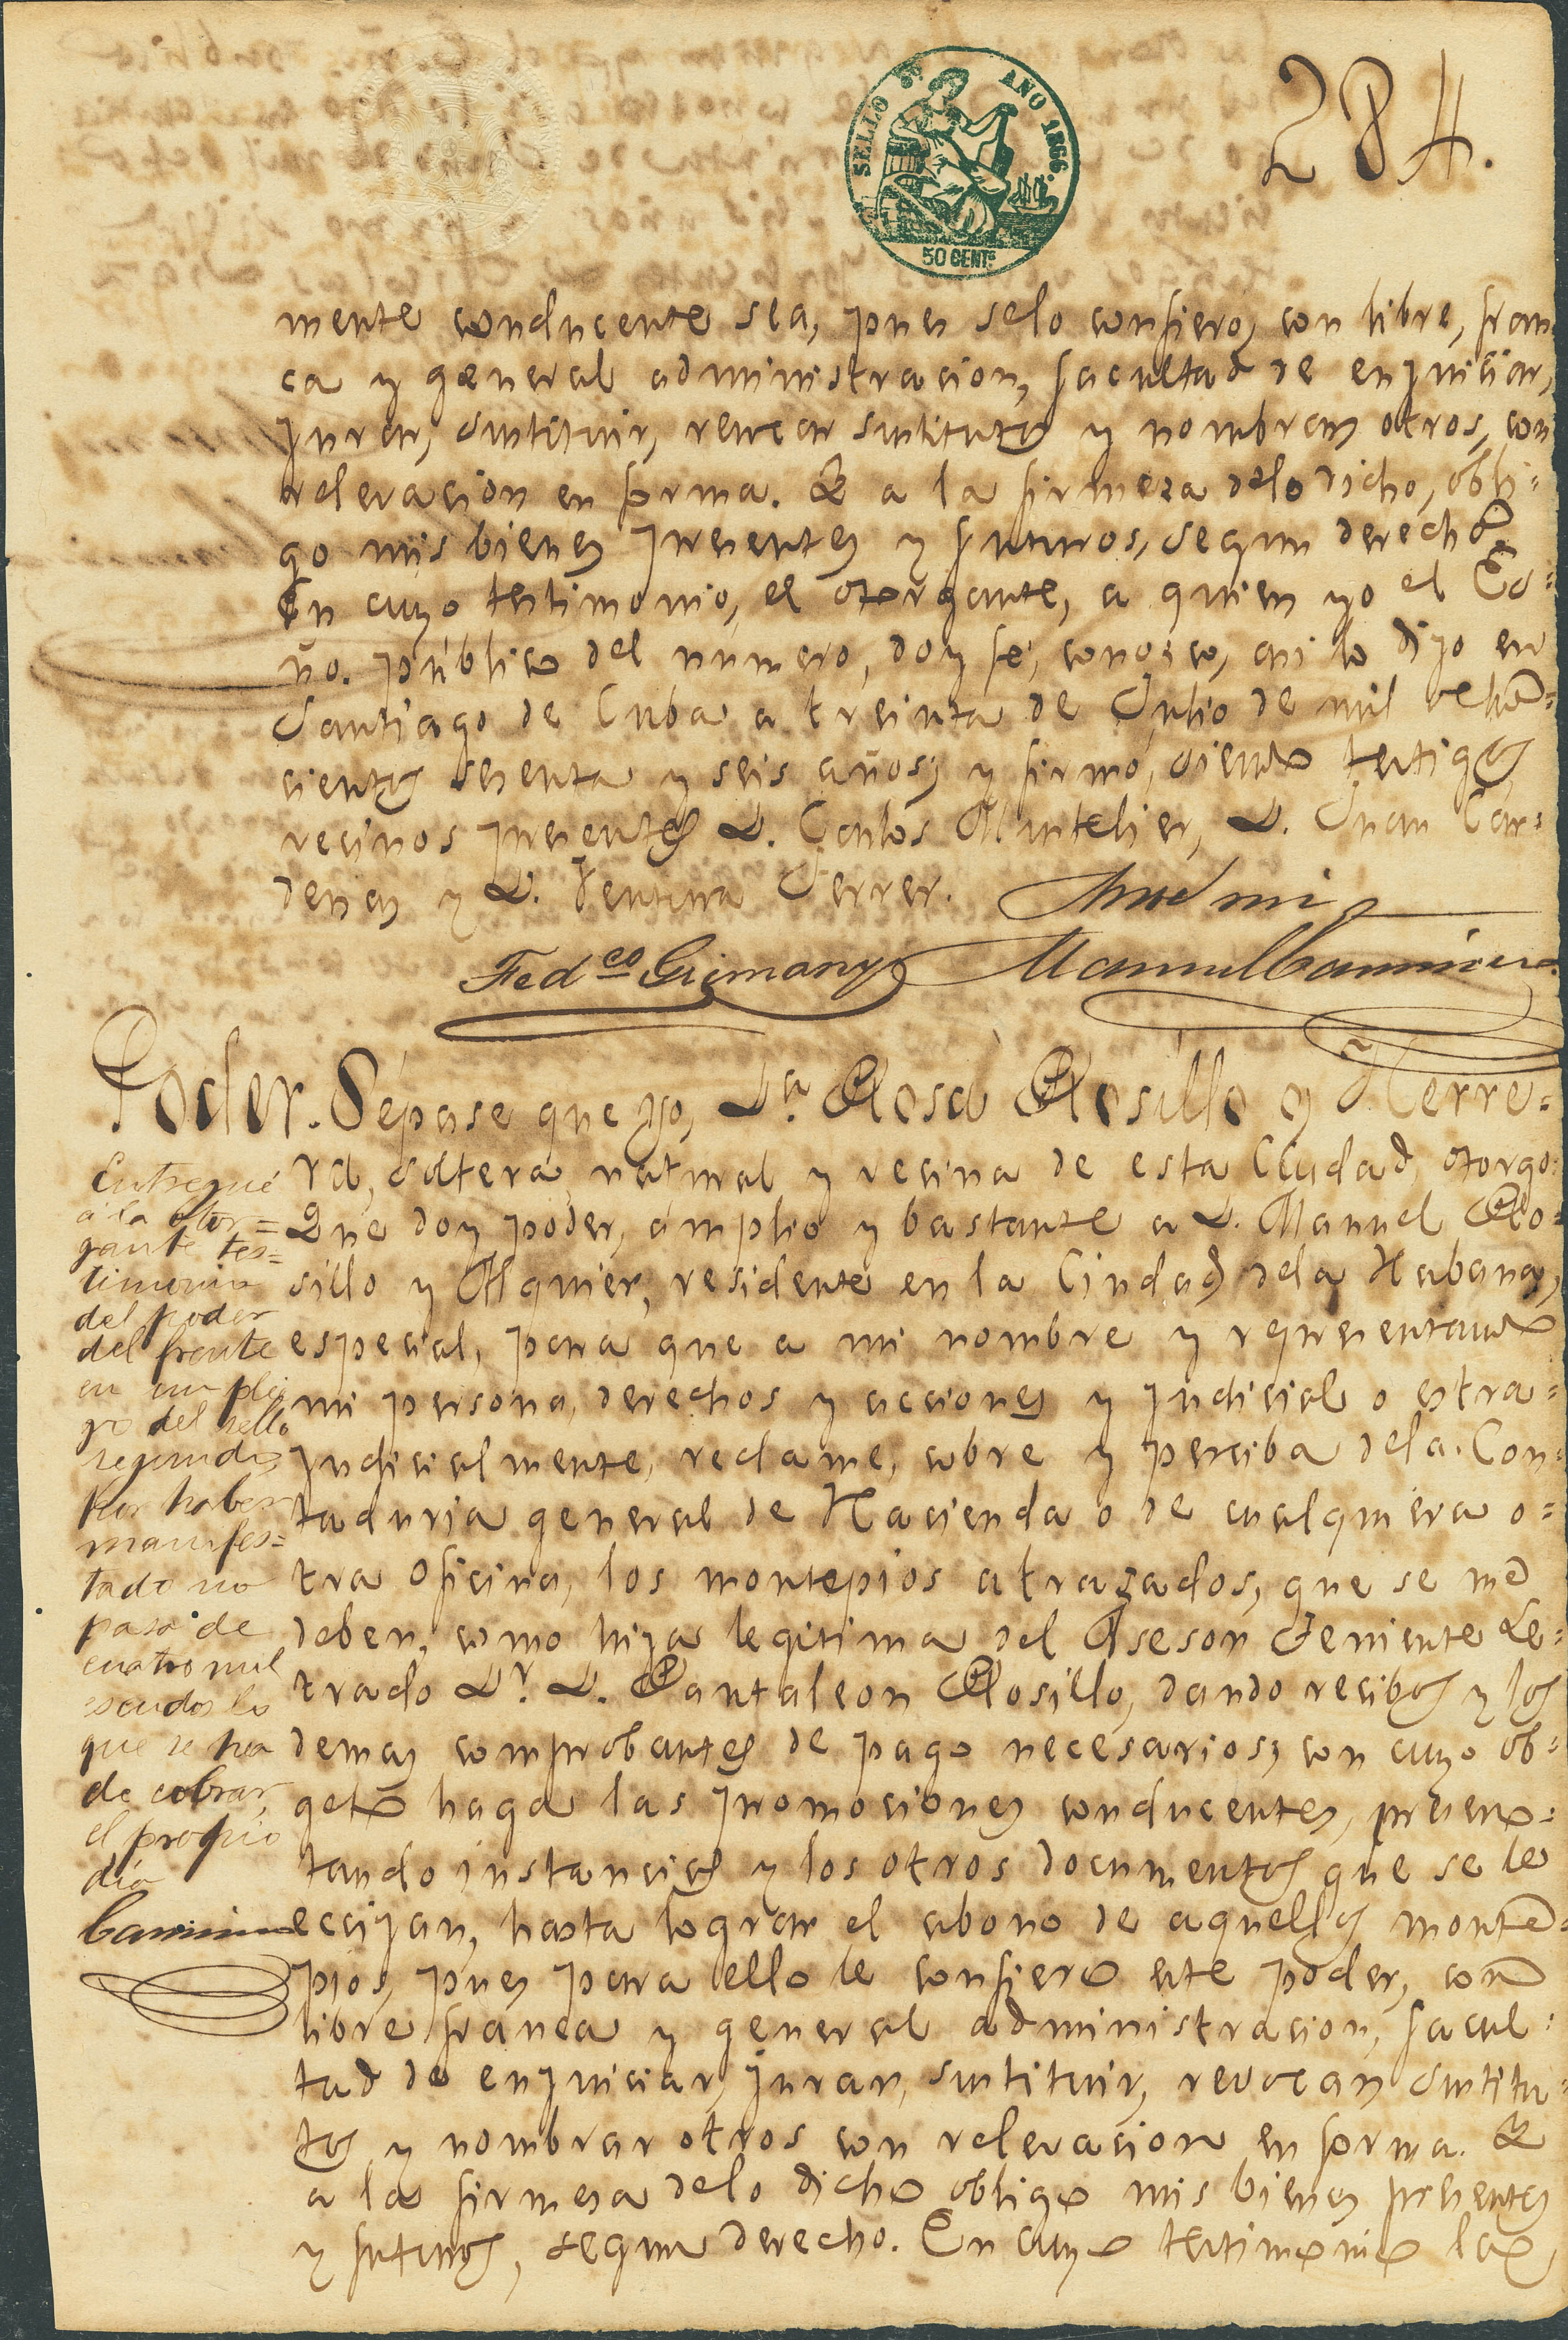 SELLO 9º AÑO 1866.
50 CENTS
284.
mente conducente sea, pues selo confiero, con libre, fran
ca y general administracion, facultad de enjuiciar,
jurar, sustituir, revocar sustitutos y nombrar otros, con
relevacion en forma. E a la firmeza delo dicho, obli=
go mis bienes presentes y futuros, segun derecho.
En cuyo testimonio, el otorgante, a quien yo el Es=
ño. público del número, doy fé, conosco, asi lo dijo en
Santiago de Cuba a treinta de Julio de mil ocho=
cientos sesenta y seis años; y firmó, siendo testigos,
vecinos presentes D. Carlos Mustelier, D. Juan Car=
denas y D. Ventura Ferrer. Ante mi
Fedco Grimany Manuel Caminero
Poder. Sépase que yo, Da. Rosa Rosillo y Herre=
ra, soltera, natural y vecina de esta Ciudad, otorgo:
Que doy poder, ámplio y bastante a D. Manuel Ro=
sillo y Alquier, residente en la Ciudad dela Habana,
especial, para que a mi nombre y representando
mi persona, derechos y acciones y judicial o estra=
judicialmente, reclame, cobre y perciba dela Con=
taduria general de Hacienda o de cualquiera o=
tra oficina, los montepios atrazados, que se me
deben, como hija legitima del Asesor Teniente Le=
trado Dr. D. Pantaleon Rosillo, dando recibos y los
demas comprobantes de pago necesarios; con cuyo ob=
geto haga las promosiones conducentes, presen=
tando instancias y los otros documentos que se le
ecsijan, hasta lograr el abono de aquellos monte=
pios, pues para ello le confiero este poder, con
libre franca y general administracion, facul=
tad de enjuiciar, jurar, sustituir, revocar sustitu=
tos y nombrar otros con relevacion en forma. E
a la firmeza delo dicho obligo mis bienes presentes
y futuros, segun derecho. En cuyo testimonio la
Entregué
á la otor=
gante tes=
timonio
del poder
del frente
en un plie
go del sello
segundo
por haber
manifes=
tado no
pasa de
cuatro mil
escudos lo
que se ha
de cobrar,
el propio
día
Caminero